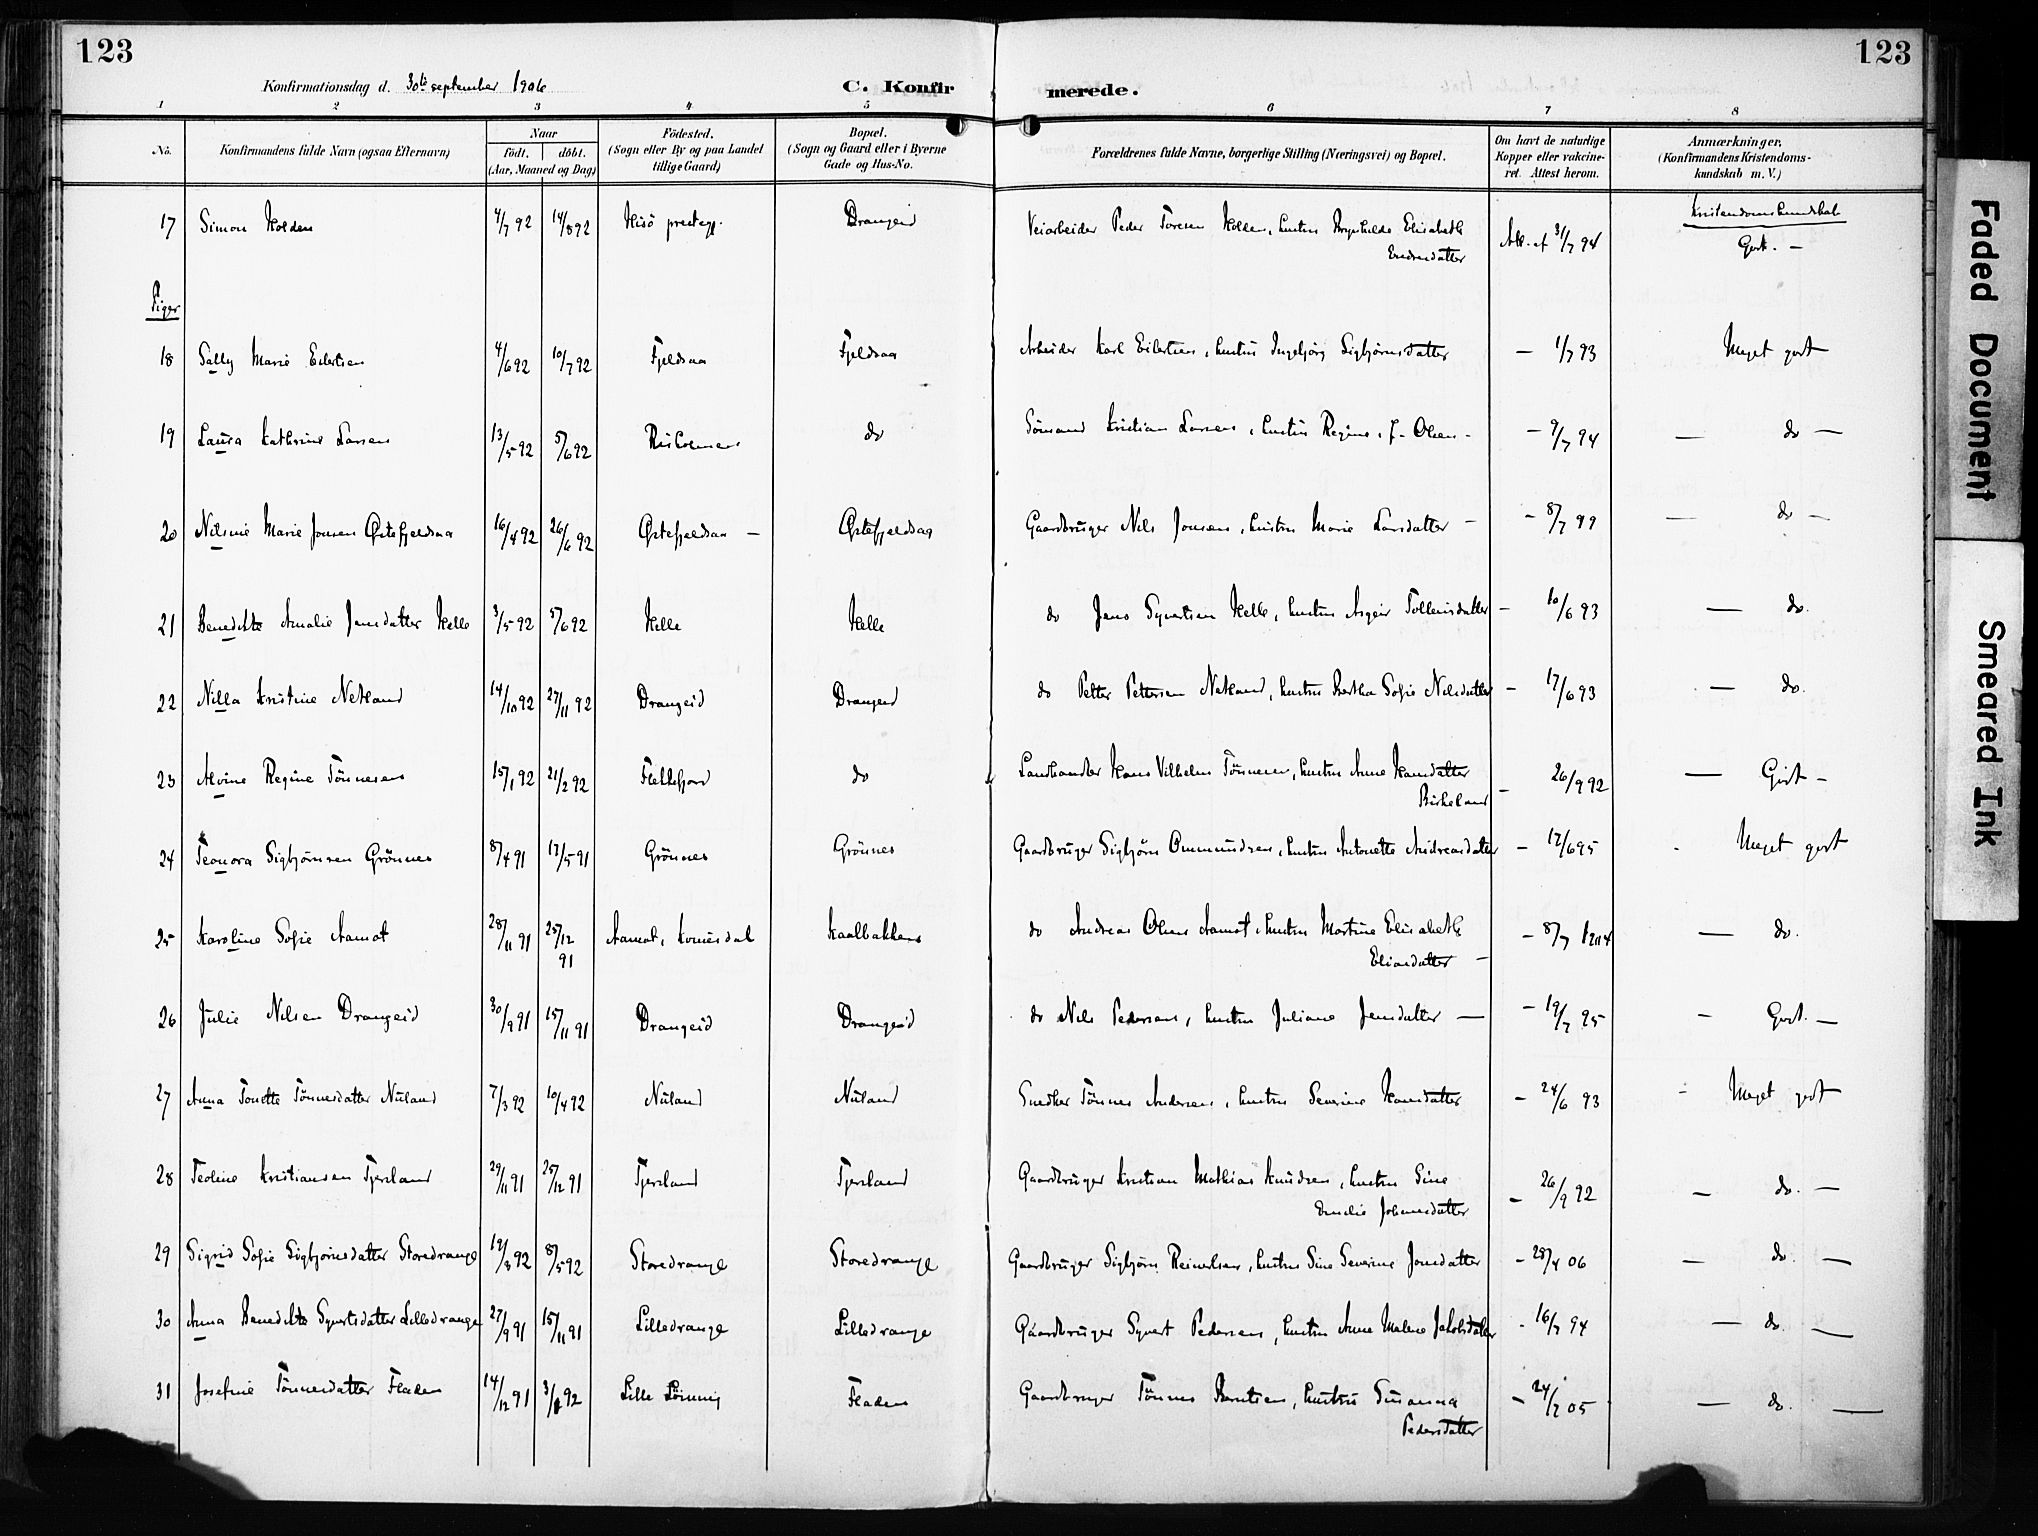 123
123
Konfirmationsdag d. 30te september 1906
C. Konfirmerede.
1 2 3 4 5 6 7 8
No.
Konfirmandens fulde Navn (ogsaa Efternavn)
Naar
födt. döbt.
(Aar, Maaned og Dag)
Födested.
(Sogn eller By og paa Landet
tillige Gaard)
Bopæl.
(Sogn og Gaard eller i Byerne
Gade og Hus-No.
Forældrenes fulde Navne, borgerlige Stilling (Næringsvei) og Bopæl.
Om havt de naturlige
Kopper eller vakcine-
ret. Attest herom.
Anmærkninger.
(Konfirmandens Kristendoms-
kundskab m. V.)
Kristendomskundskab
17 Simon Holden 4/7 92 14/8 92 Hisö prestegj. Drangeid Veiarbeider Peder Toresen Holden, hustru Elisabeth Att. af 31/7 94 Godt. —
Endresdatter
Piger
18 Sally Marie Eilertsen 4/6 92 10/7 92 Fjeldsaa Fjeldsaa Arbeider Karl Eilertsen, hustru Ingebjörg Sigbjörnsdatter — 1/7 93 Meget godt
19 Laura Kathrine Larsen 13/5 92 5/6 92 do Sömand Kristian Larsen, hustru Regine, f. Olsen - — 9/7 94 — do —
20 Nilsine Marie Jonsen Østefjeldsaa 16/4 92 26/6 92 Østefjeldsaa — Østefjeldsaa Gaardbruger Nils Jonsen, hustru Marie Larsdatter — - 8/7 99 — do —
21 Benedikte Amalie Jensdatter Helle 3/5 92 5/6 92 Helle Helle do Jens Syvertsen Helle, hustru Asgjer Tolleusdatter — 10/6 93 — do.
22 Nilla Kristine Netland 14/10 92 27/11 92 Drangeid Drangeid do Petter Pettersen Netland, hustru Bertha Sofie Nilsdatter — 17/6 93 — do.
23 Alvine Regine Tönnesen 15/1 92 21/2 92 Flekkefjord do Landhandler Hans Vilhelm Tönnesen, hustru Anne Hansdatter — 26/9 92 — Godt —
Birkeland
24 Teonora Sigbjörnsen Grönnes 8/4 91 17/5 91 Grönnes Grönnes Gaardbruger Sigbjörn Ommundsen, hustru Antonette Andreasdatter — 17/6 95 Meget godt
25 Karoline Sofie Aamot 28/11 91 25/12 91 Aamot, Kvinesdal Kaalbakken do Andreas Olsen Aamot, hustru Martine Elisabeth — 8/7 — do.
Eliasdatter —
26 Julie Nilsen Drangeid 30/9 91 15/11 91 Drangeid Drangeid do Nils Pedersen, hustru Juliane Jensdatter — — 19/7 95 — Godt. —
27 Anna Tonette Tönnesdatter Nuland 7/3 92 10/4 92 Nuland Nuland Snedker Tönnes Andersen, hustru Severine Hansdatter — 24/6 93 — Meget godt
28 Teoline Kristiansen Tjersland 29/11 91 25/12 91 Tjersland Tjersland Gaardbruger Kristian Mathias Knudsen, hustru Sine — 26/9 92 — do. —
Emelie Johannesdatter
29 Sigrid Sofie Sigbjörnsdatter Storedrange 12/3 92 8/5 92 Storedrange Storedrange Gaardbruger Sigbjörn Reinertsen, hustru Sine Severine Jonsdatter — 28/4 06 — do —
30 Anna Benedikte Syvertsdatter Lilledrange 27/9 91 15/11 91 Lilledrange Lilledrange Gaardbruger Syvert Pedersen, hustru Anne Malene Jakobsdatter - 16/7 94 — do. —
31 Josefine Tönnesdatter Fladen 14/12 91 92 Lille Fladen Gaardbruger Tönnes Berntsen, hustru Susanna — 24/2 05 — do. —
Pedersdatter
Faded Document
Smeared Ink